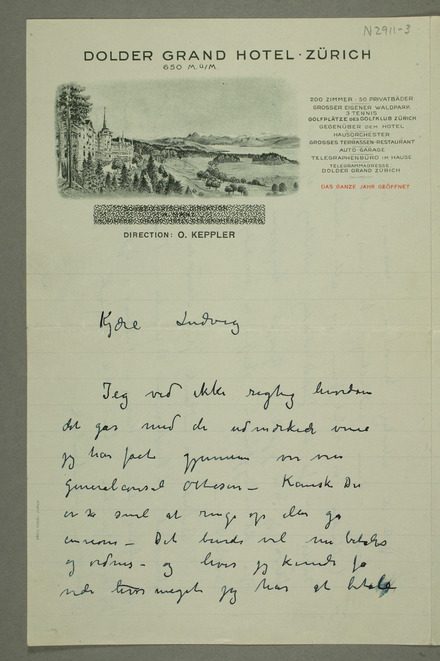 N2911-3
DOLDER GRAND HOTEL · ZÜRICH
650 M.Ü/M.
200 ZIMMER · 50 PRIVATBÄDER
GROSSER EIGENER WALDPARK
3 TENNIS
GOLFPLÄTZE DES GOLFKLUB ZÜRICH
GEGENÜBER DEM HOTEL
HAUSORCHESTER
GROSSES TERRASSEN-RESTAURANT
AUTO-GARAGE
TELEGRAPHENBÜRO IM HAUSE
TELEGRAMMADRESSE:
DOLDER GRAND ZÜRICH
DAS GANZE JAHR GEÖFFNET
DIRECTION: O. KEPPLER
Kjære Ludvig
Jeg ved ikke rigtig hvordan
det gaar med de udmærkede vine
jeg har faaet gjennem vor ven
Generalconsul Ottesen – Kanske Du
er så snil at ringe op eller gå
– Det burde vel nu betales
og ordnes – og hvis jeg kunde få
vide hvor meget jeg har at betale